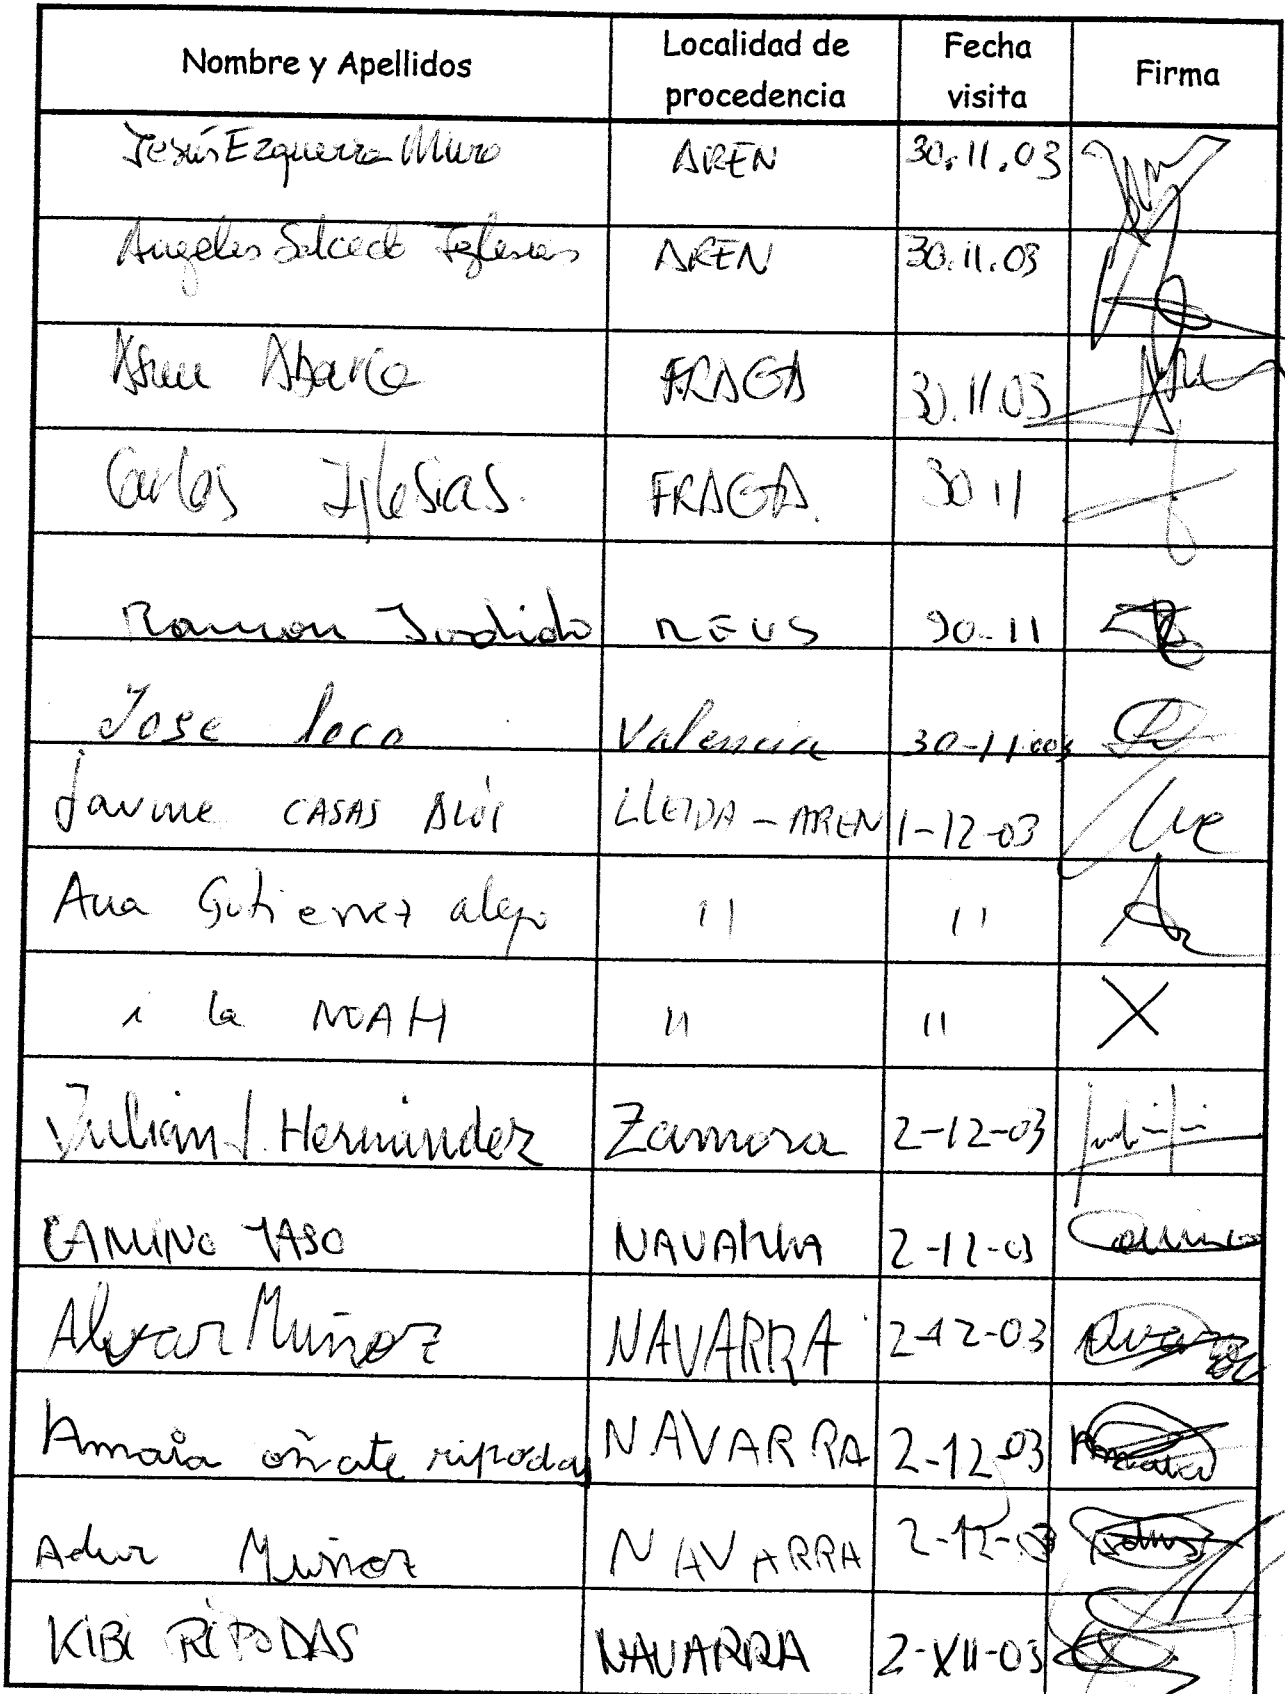 Nombre y Apellidos Localidad de procedencia Fecha visita Firma
Jesús Ezquerra Muro AREN 30.11.03
Angeles Salcedo Iglesias AREN 30.11.03
Abarca FRAGA 30.11.03
Carlos Iglesias. FRAGA. 30 11
Ramon REUS 30-11
Jose Valencia 30-11
Jaume CASAS LLEIDA - AREN 1-12-03
Ana Gutierrez alejo " "
i la NOAH " " X
Julian J. Hernández Zamora 2-12-03
CAMINO JASO NAVARRA 2-12-03 Camino
Alvar Muñoz NAVARRA 2-12-03 Alvar
Amaia oñate ripodas NAVARRA 2-12-03 Amaia
Adur Muñoz NAVARRA 2-12-03 Adur
KIBI RIPODAS NAVARRA 2-XII-03